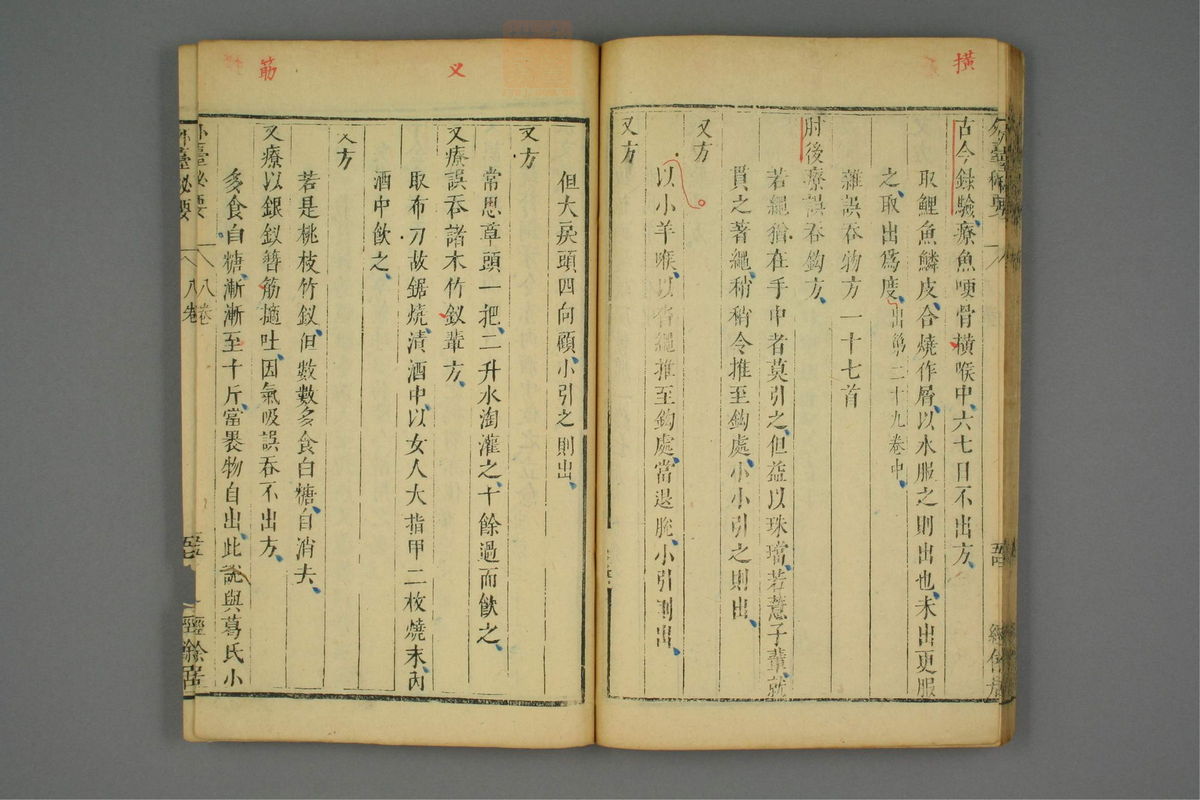 橫
外臺秘要
古今錄驗療魚哽骨橫喉中六七日不出方
取鯉魚鱗皮合燒作屑以水服之則出也未出更服
之取出爲度出第二十九卷中
雜誤吞物方一十七首
肘後療誤吞鈎方
若繩猶在手中者莫引之但益以珠璫若薏子輩就
貫之著繩稍稍令推至鈎處小小引之則出
又方
以小羊喉以沓繩推至鈎處當退脫小引則出
又方
又
筋
但大戾頭四向顧小引之則出
又方
常思草頭一把二升水淘灌之十餘過而飲之
又療誤吞諸木竹釵輩方
取布刀故鋸燒漬酒中以女人大指甲二枚燒末內
酒中飲之
又方
若是桃枝竹釵但數數多食白糖自消去
又療以銀釵簪筋擿吐因氣吸誤吞不出方
多食白糖漸漸至十斤當裹物自出此說與葛氏小
外臺秘要
八卷
經餘居